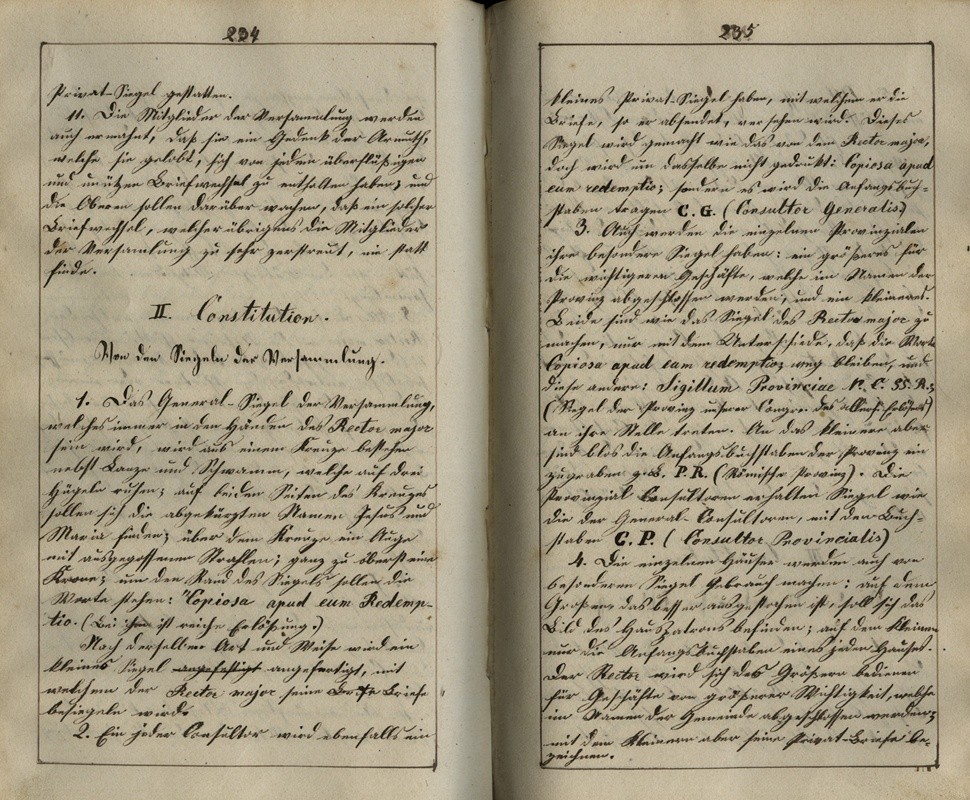 234
Privat-Siegel gestatten.
11. Die Mitglieder der Versammlung werden
auch ermahnt, daß sie ein Gedenk der Armuth,
welche sie gelobt, sich von jedem überflüßigen
und unützen Briefwechsel zu enthalten haben; und
die Oberen sollen darüber wachen, daß ein solcher
Briefwechsel, welcher übrigens die Mitglieder
der Versamlung zu sehr zerstreut, nie statt
finde.
II. Constitution.
Von den Siegeln der Versammlung.
1. Das General-Siegel der Versammlung,
welches immer in den Händen des Rector major
sein wird, wird aus einem Kreuze bestehen
nebst Lanze und Schwamm, welche auf drei
Hügeln ruhen; auf beiden Seiten des Kreuzes
sollen sich die abgekürzten Namen Jesus und
Maria finden; über dem Kreuze ein Auge
mit ausgegossenen Strahlen; ganz zu oberst eine
Krone; um den Rand des Siegels sollen die
Worte stehen: "Copiosa apud eum Redemp-
tio. (Bei ihm ist reiche Erlösung.)
Nach derselben Art und Weise wird ein
kleines Siegel angefertigt, mit
welchem der Rector major seine Briefe
besiegeln wird.
2. Ein jeder Consultor wird ebenfalls ein
235
kleines Privat-Siegel haben, mit welchem er die
Briefe, so er absendet, versehen wird. Dieses
Siegel wird gemacht wie das von dem Rector major,
doch wird in dasselbe nicht gedrukt: Copiosa apud
eum redemptio; sondern es wird die Anfangsbuch-
staben tragen C.G. (Consultor Generalis)
3. Auch werden die einzelnen Provinzialen
ihre besondere Siegel haben: ein größeres für
die wichtigeren Geschäfte, welche im Namen der
Provinz abgeschlossen werden, und ein kleineres.
Beide sind wie das Siegel des Rector major zu
machen, nur mit dem Unterschiede, daß die Worte
Copiosa apud eum redemptio; weg bleiben, und
diese andere: Sigillum Provinciae N. C. SS. R.;
(Siegel der Provinz unserer Congre. des allerh. Erlösers)
an ihre Stelle treten. An das kleinere aber
sind blos die Anfangsbuchstaben der Provinz ein
zugraben z.B. P.R. (Römische Provinz). Die
Provinzial Consultoren erhalten Siegel wie
die der General-Consultoren, mit den Buch-
staben C.P. (Consultor Provincialis)
4. Die einzelnen Häuser werden auch von
besonderen Siegel Gebrauch machen: auf dem
Größern das besser ausgestochen ist, soll sich das
Bild des Hauspatrons befinden; auf dem kleinen
nur die Anfangsbuchstaben eines jeden Hauses.
Der Rector wird sich des Größern bedienen
für Geschäfte von größerer Wichtigkeit, welche
im Namen der Gemeinde abgeschlossen werden;
mit dem kleinern aber seine Privat-Briefe be-
zeichnen.